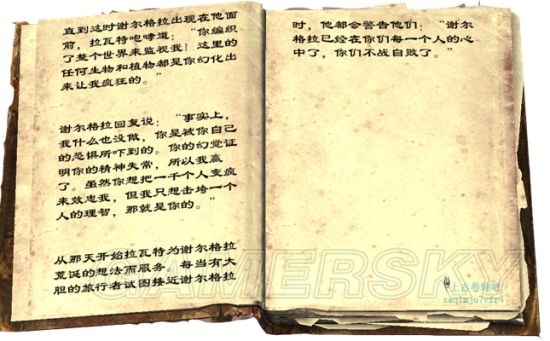 直到这时谢尔格拉出现在他面
前，拉瓦特咆哮道：“你编织
了整个世界来监视我！这里的
任何生物和植物都是你幻化出
来让我疯狂的。”
谢尔格拉回复说：“事实上，
我什么也没做，你是被你自己
的恐惧所吓到的。你的幻觉证
明你的精神失常，所以我赢
了。虽然你想把一千个人变疯
来效忠我，但我只想击垮一个
人的理智，那就是你的。”
从那天开始拉瓦特为谢尔格拉
荒诞的想法而服务。每当有大
胆的旅行者试图接近谢尔格拉
时，他都会警告他们：“谢尔
格拉已经在你们每一个人的心
中了，你们不战自败了。”
GAMERSKY
上古卷轴吧
zaq1mju7vfr4